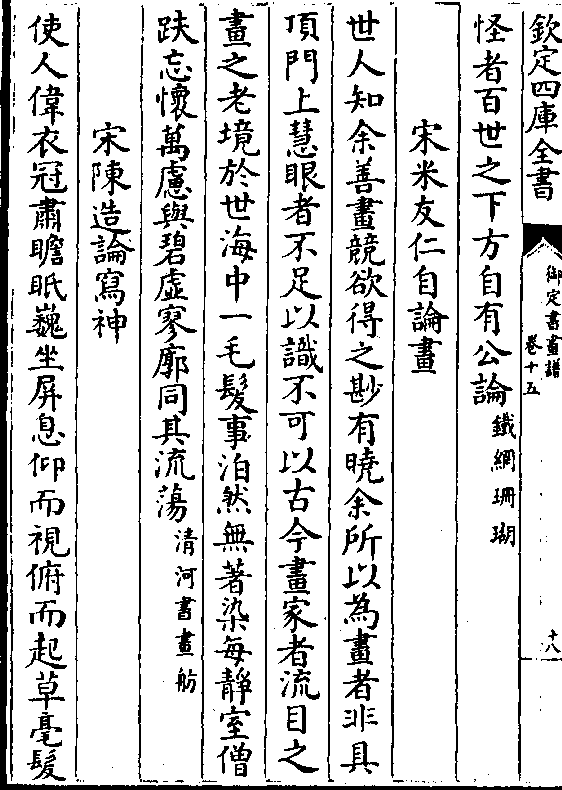 欽定四庫全書
御定書畫譜
卷十五
十八
怪者百世之下方自有公論鐵網珊瑚
宋米友仁自論畫
世人知余善畫競欲得之尠有曉余所以為畫者非具
頂門上慧眼者不足以識不可以古今畫家者流目之
畫之老境於世海中一毛髮事泊然無著染每靜室僧
趺忘懷萬慮與碧虛寥廓同其流蕩清河書畫舫
宋陳造論寫神
使人偉衣冠肅瞻眂巍坐屏息仰而視俯而起草毫髮